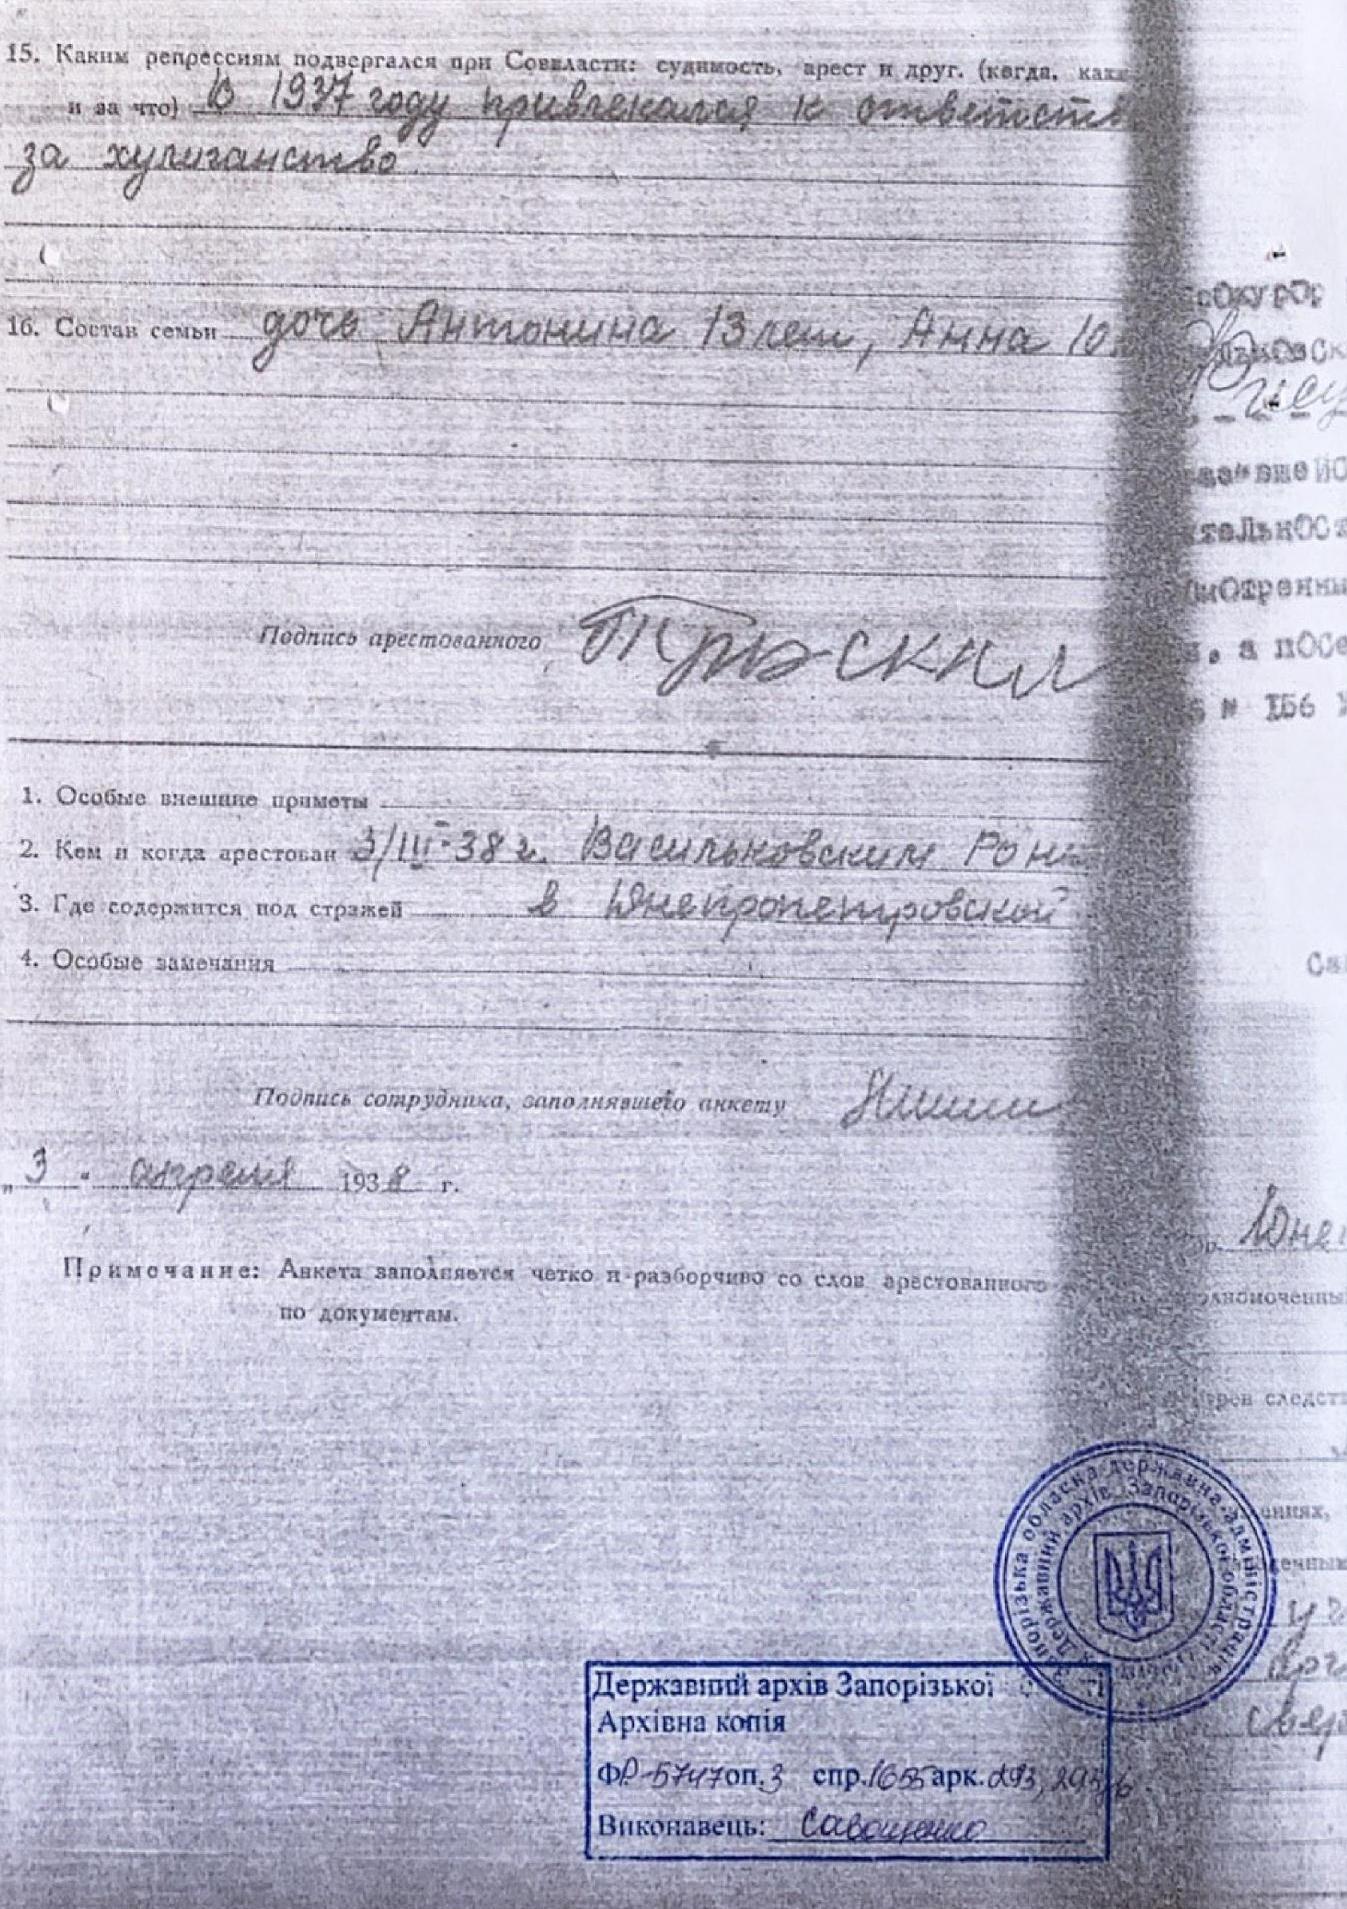 15. Каким репрессиям подвергался при Соввласти: судимость, арест и друг. (когда, каки
и за что) В 1937 году привлекался к ответств
за хулиганство.
16. Состав семьи дочь Антонина 13 лет, Анна 10
Подпись арестованного
1. Особые внешние приметы
2. Кем и когда арестован 3/III-38 г. Васильковским Рон
3. Где содержится под стражей в Днепропетровской
4. Особые замечания
Подпись сотрудника, заполнявшего анкету
„3 " апреля 1938 г.
Примечание: Анкета заполняется четко и разборчиво со слов арестованного
по документам.
рокурор
а посе
№ 156
Днеп
следст
Запорізька обласна державна адміністрація
Державний архів Запорізької області
Державний архів Запорізької
Архівна копія
ФР-5747 оп.3 спр.1655 арк.293,
Виконавець: Савощенко